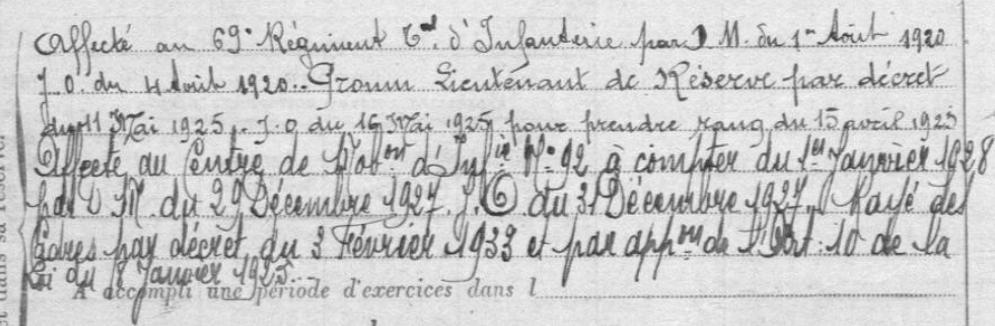 Affecté au 69e Régiment Tal d'Infanterie par D M. du 1er Août 1920
J. O. du 4 Août 1920.. Promu Lieutenant de Réserve par décret
du 11 Mai 1925.. J. O du 16 Mai 1925, pour prendre rang du 15 avril 1925
Affecté au Centre de Mobon d'Infie No 92 à compter du 1er Janvier 1928
par D M. du 29 Décembre 1927. J. O du 31 Décembre 1927. Rayé des
Cadres par décret du 3 Février 1933 et par appon de l'Art. 10 de la
Loi du 8 Janvier 1925.
A accompli une période d'exercices dans l
et dans sa réserve.